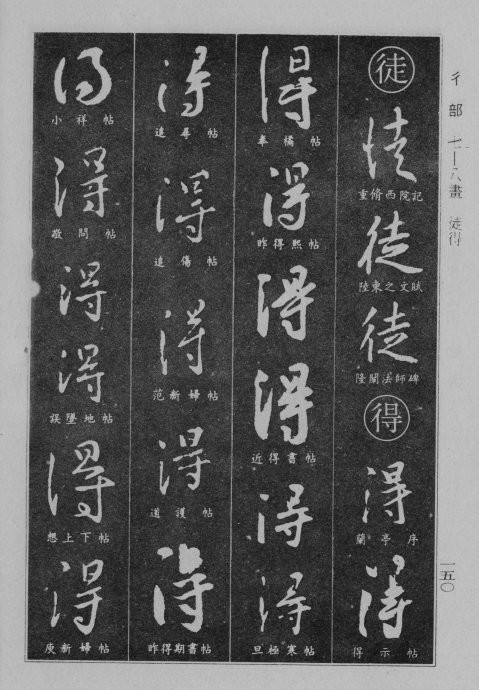 彳部 七—八畫 徒得
徒
徒
重脩西院記
徒
陸東之文賦
徒
隆闡法師碑
得
得
蘭亭序
得
得示帖
得
奉橘帖
得
昨得熙帖
得
得
近得書帖
得
得
旦極寒帖
得
追尋帖
得
追傷帖
得
范新婦帖
得
道護帖
得
昨得期書帖
得
小祥帖
得
敬問帖
得
得
誤墜地帖
得
想上下帖
得
庾新婦帖
一五〇